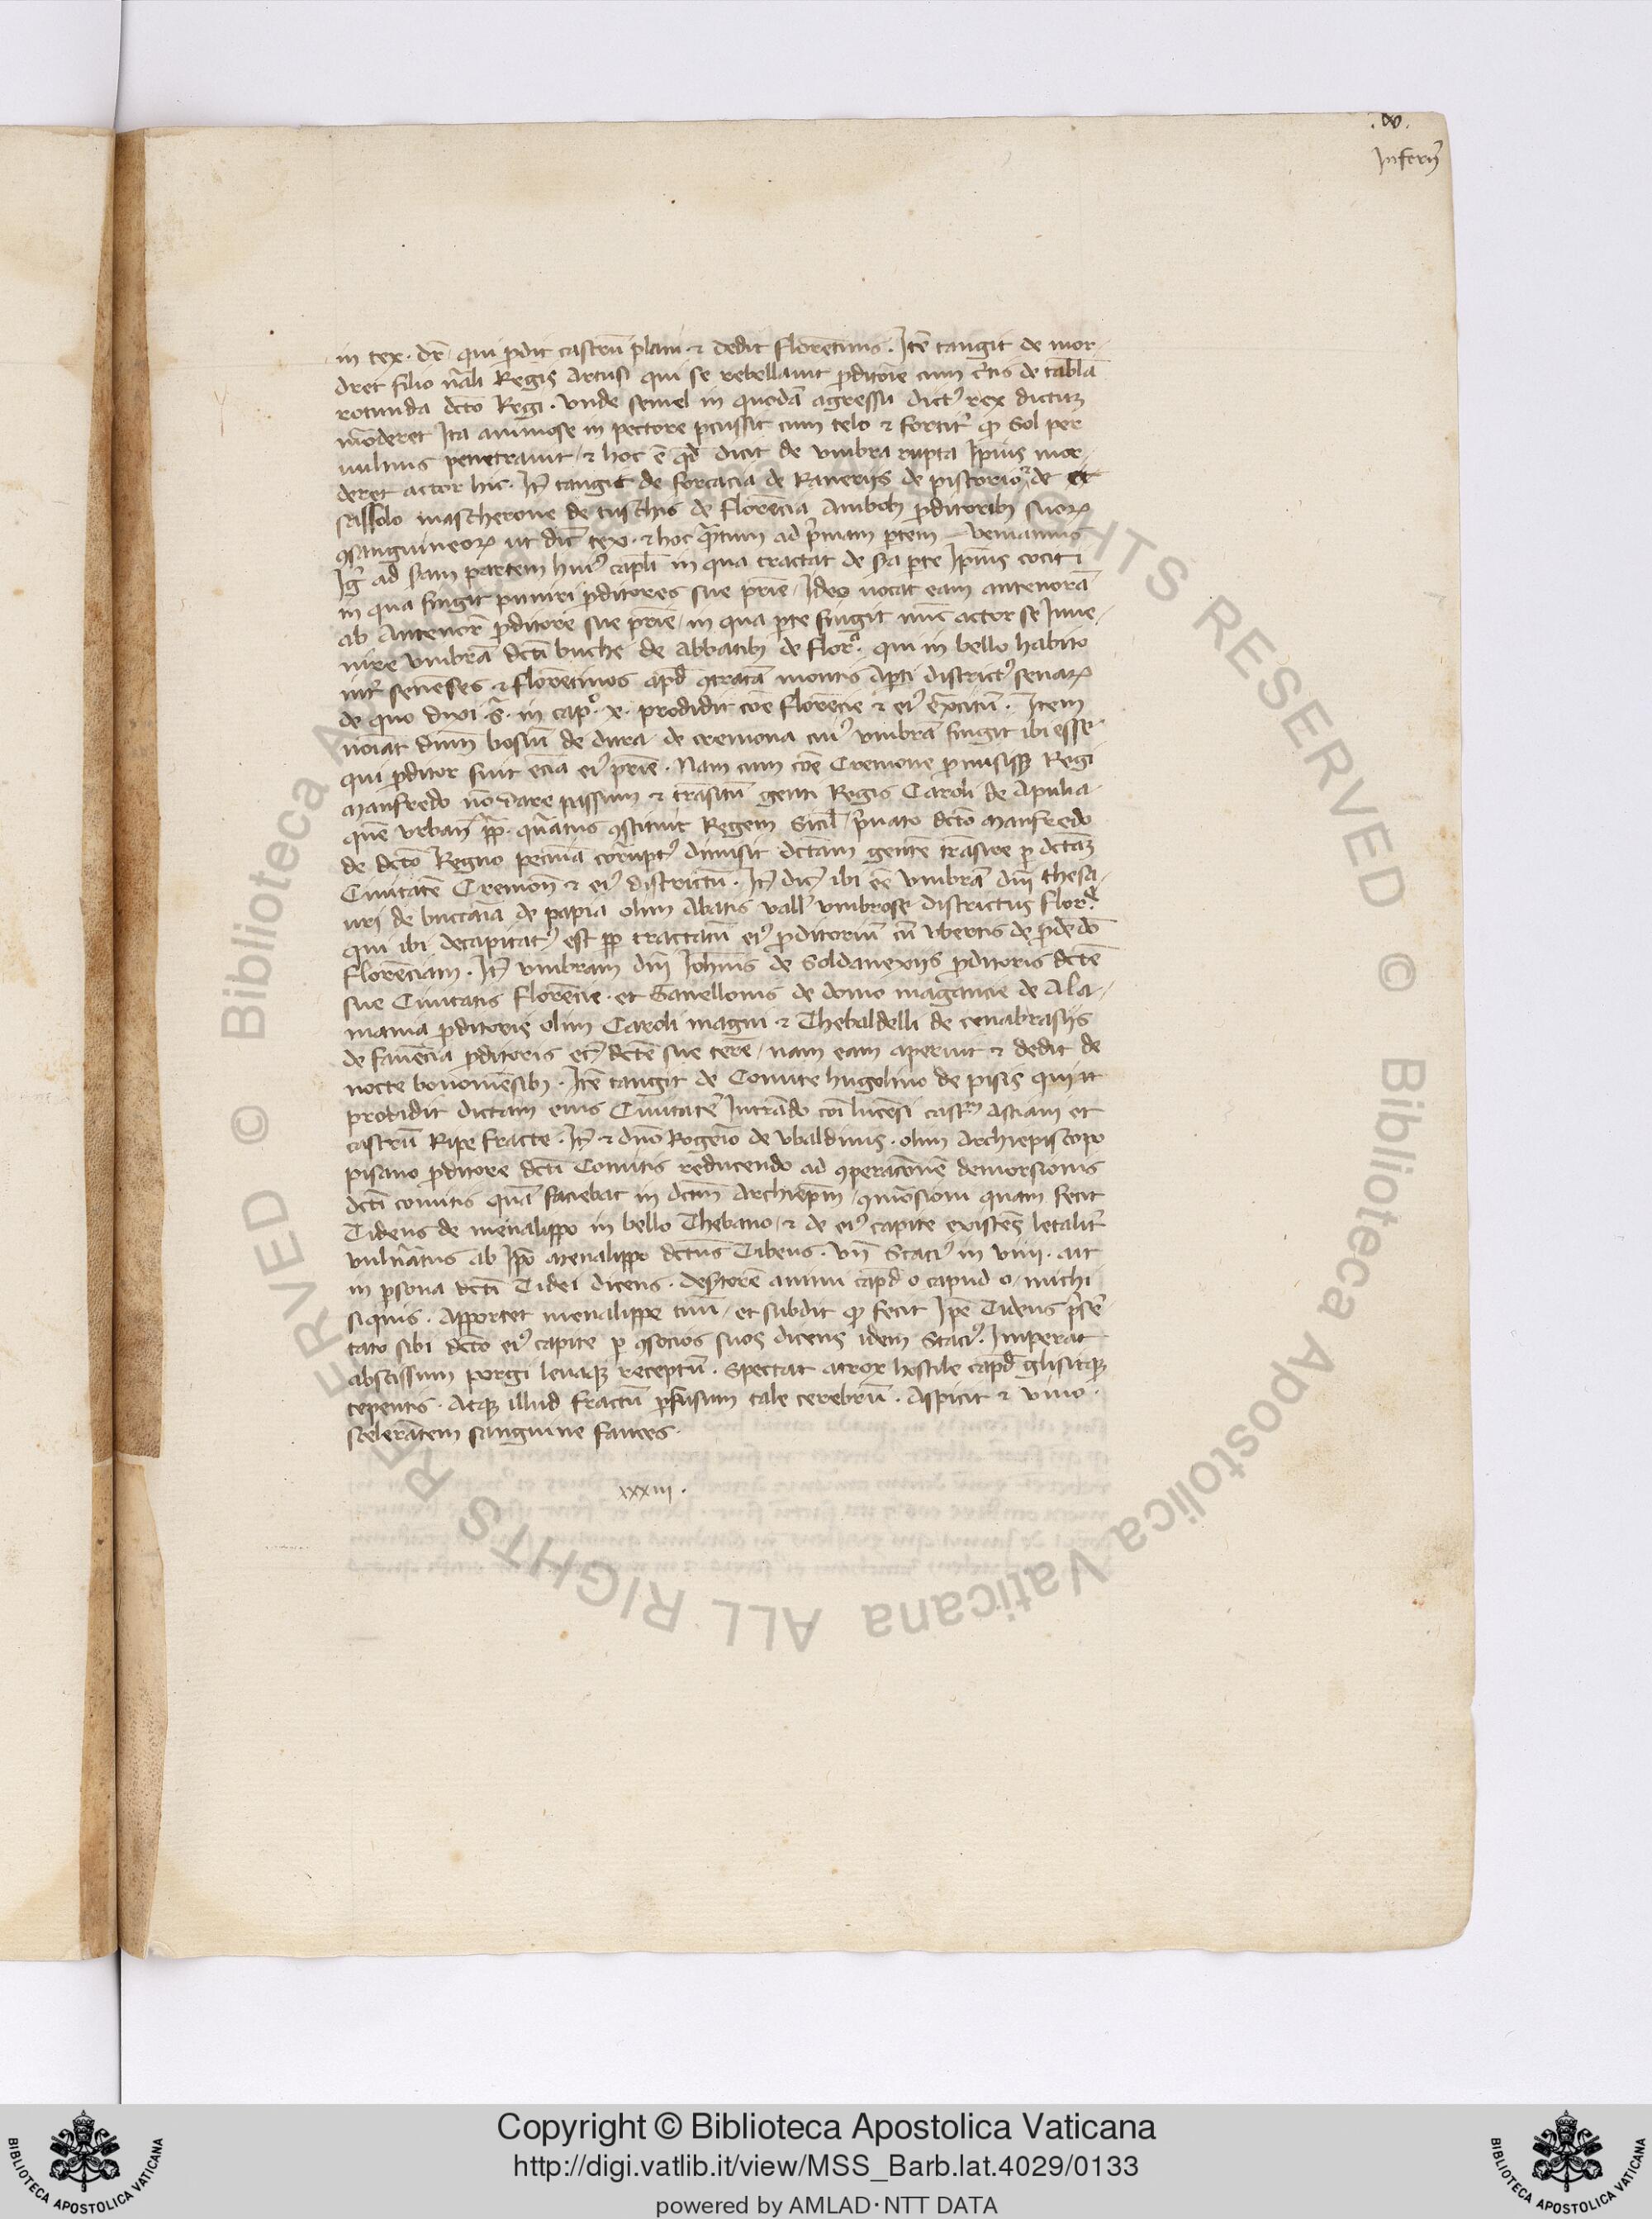 .w.
Infern̄
in tex. dr̄. qui ꝓdit castrū plani ⁊ dedit florētinis. Itē tangit de mor-
dret filio nāli Regis Artusi qui se rebellavit ꝓditorie cum c̄tis de tabula
rotunda dc̄to Regi. Unde semel in quodā agressu dict⁹ rex dictum
mōderet Ita animose in pectore ꝑcussit cum telo ⁊ fortit̄ ꝙ sol per
uulnus penetravit ⁊ hoc ē qd̄ dicit de umbra rupta Ipius mor-
deret actor hic. It̄ tangit de forcacia de Raneriis de pistorio ⁊ de et
sassolo mascherone de tuschis de florencia Ambob; ꝓditorib; suoꝝ
ꝯsanguineoꝝ ut dic̄ tex. ⁊ hoc quātum ad p̄mam ꝑtem. Veniamus
Iḡ ad s̄am partem hui⁹ capl̄i in qua tractat de s̄a ꝑte Ipius cocit ⁊
in qua fingit puniri ꝓditores sue pr̄ie Ideo uocat eam antenorā
ab Antenorē ꝓditore sue pr̄ie in qua ꝑte fingit nūc actor se Inue-
nire umbrā dc̄ti buche de abbatib; de flor.ᵃ qui in bello habito
int̄ senēses ⁊ florētinos apd̄ ꝯtratā montis Apti district⁹ senaꝝ
de quo dixi s̄. in cap.º x. prodidit cōe florēcie ⁊ ei⁹ ex̄citū. Item
noīat dn̄m bosiū de dura de cremona cui⁹ umbrā fingit ibi esse
qui ꝓditor fuit ecia ei⁹ pr̄ie. Nam cum cōe Cremone ꝓmisisset Regi
Manfredo nō dare passum ⁊ trāsitū genti Regis Caroli de Apulia
quē urban̄ pp̄. quartus ꝯstituit Regem Sicil̄ p̄uato dc̄to Manfredo
de dc̄to Regno pecunia corrupt⁹ dimisit dc̄tam gentē trāsire ꝑ dc̄tam
Ciuitatē Cremon̄ ⁊ ei⁹ districtū. It̄ dic̄ ibi eē umbrā dn̄i thesa-
uri de buccaia de papia olim Abatis uall̄ umbrose districtus flor.ᵉ
qui ibi decapitat⁹ est ꝓp tractatū ei⁹ ꝓditoriū cū ubertis de ꝓdēdo
florēciam. It̄ umbram dn̄i Ioh̄nis de Soldaneriis ꝓditoris dc̄te
sue Ciuitatis florēcie. et Ganellonis de domo magancie de Ala-
mania ꝓditoris olim Caroli magni ⁊ Thebaldelli de cenabrasiis
de fauēcia ꝓditoris ec̄ dc̄te sue terē nam eam aperuit ⁊ dedit de
nocte bononiēsib;. Itē tangit de Comite hugolino de pisis qui it
prodidit dictam eius Ciuitatē Intrādo cōi lucēsi castrū Asciani et
castrū Ripe fracte. It̄ ⁊ dn̄o Rogeīo de Ubaldinis. olim Archiepiscopo
pisano ꝓditore dc̄ti Comitis reducendo ad ꝯperacōnē demorsionis
dc̄ti comitis quā faciebat in dc̄m Archiepm̄ ꝯmōsioni quam fecit
Tideus de menalippo in bello Thebano ⁊ de ei⁹ capite existēs letalit̄
uuln̄atus ab Ipo Menalippo dc̄tus Tideus. Un̄ Staci⁹ in viiii. ait
in ꝑsona dc̄ti Tidei dicens. desertorē animi capd̄ o capud o michi
siquis. Apportet menalippe tuū et subdit ꝙ fecit Ipe Tideus p̄sē-
tato sibi dc̄to ei⁹ capite ꝑ ꝯsocios suos dicens idem Staci⁹. Imperat
abscissum porgi leuaꝗ; receptū. Spectat atrox hostile capd̄ glisitꝗ;
tepentis. Atꝗ; illud fractū ꝑfusum tale cerebrū. Aspicit ⁊ uiuo.
scelerātem sanguine fauces.
xxxiii.
Copyright © Biblioteca Apostolica Vaticana
http://digi.vatlib.it/view/MSS_Barb.lat.4029/0133
powered by AMLAD·NTT DATA
BIBLIOTECA APOSTOLICA VATICANA
BIBLIOTECA APOSTOLICA VATICANA
© Biblioteca Apostolica Vaticana ALL RIGHTS RESERVED © Biblioteca Apostolica Vaticana ALL RIGHTS RESERVED